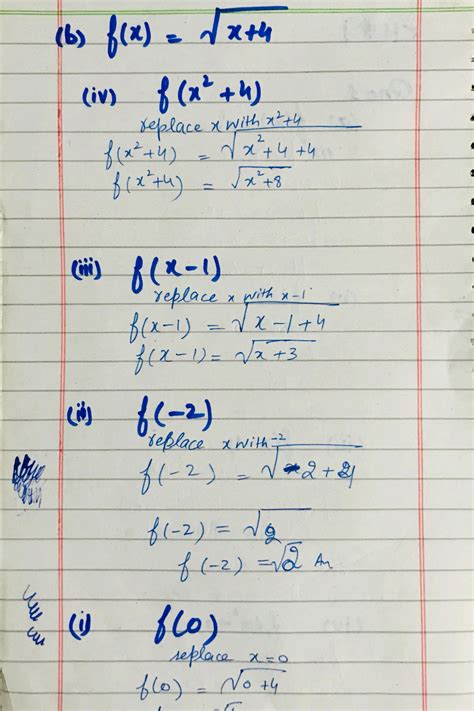 (b) f(x) = √x+4
(iv) f(x²+4)
replace x with x²+4
f(x²+4) = √x²+4+4
f(x²+4) = √x²+8
(iii) f(x-1)
replace x with x-1
f(x-1) = √x-1+4
f(x-1) = √x+3
(ii) f(-2)
replace x with -2
f(-2) = √-2+4
f(-2) = √2
f(-2) = √2 An
(i) f(0)
replace x=0
f(0) = √0+4